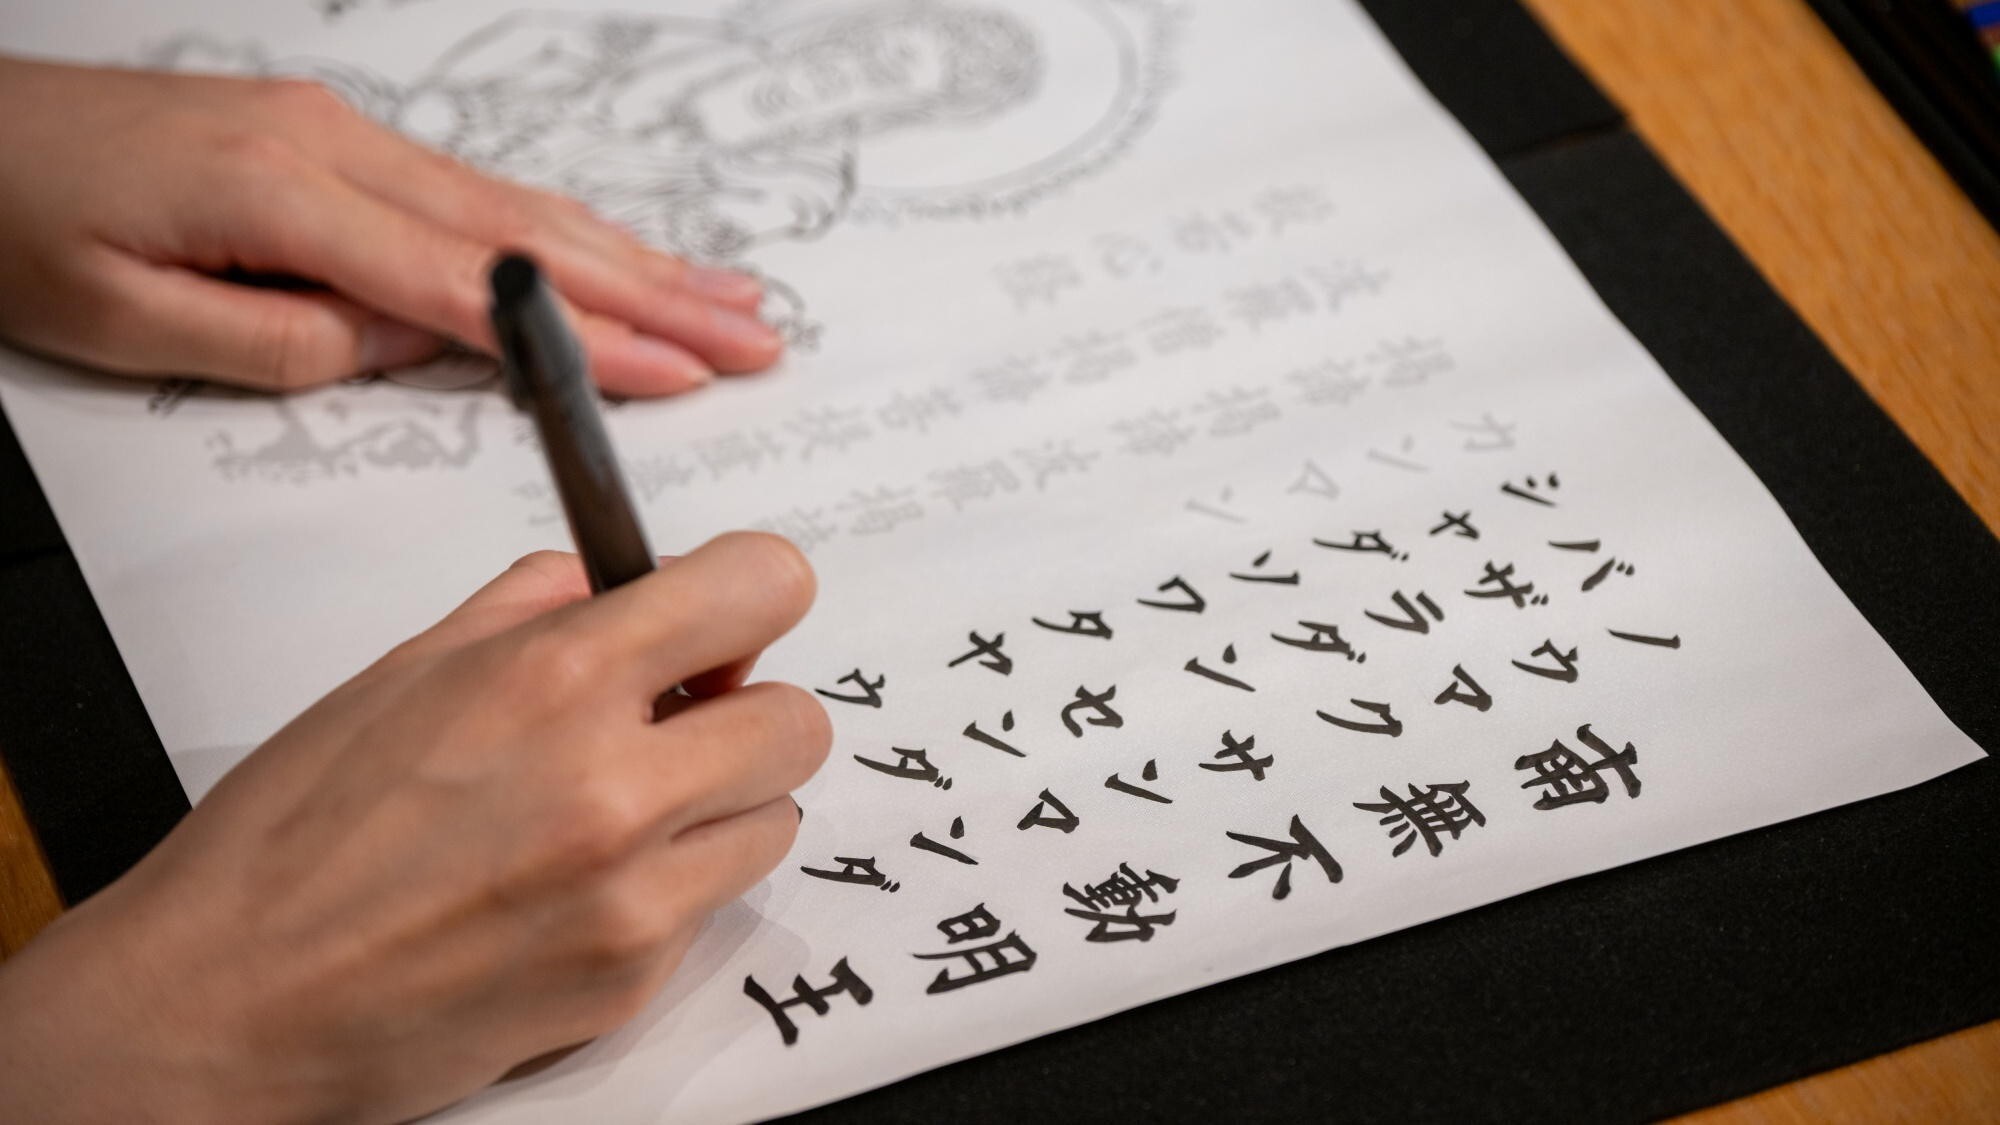 南無不動明王
ノウマクサンマンダ
バザラダンセンダ
シャダソワタヤウ
カンマン
掲諦掲諦波羅掲諦
波羅僧掲諦菩提薩婆訶
般若心経